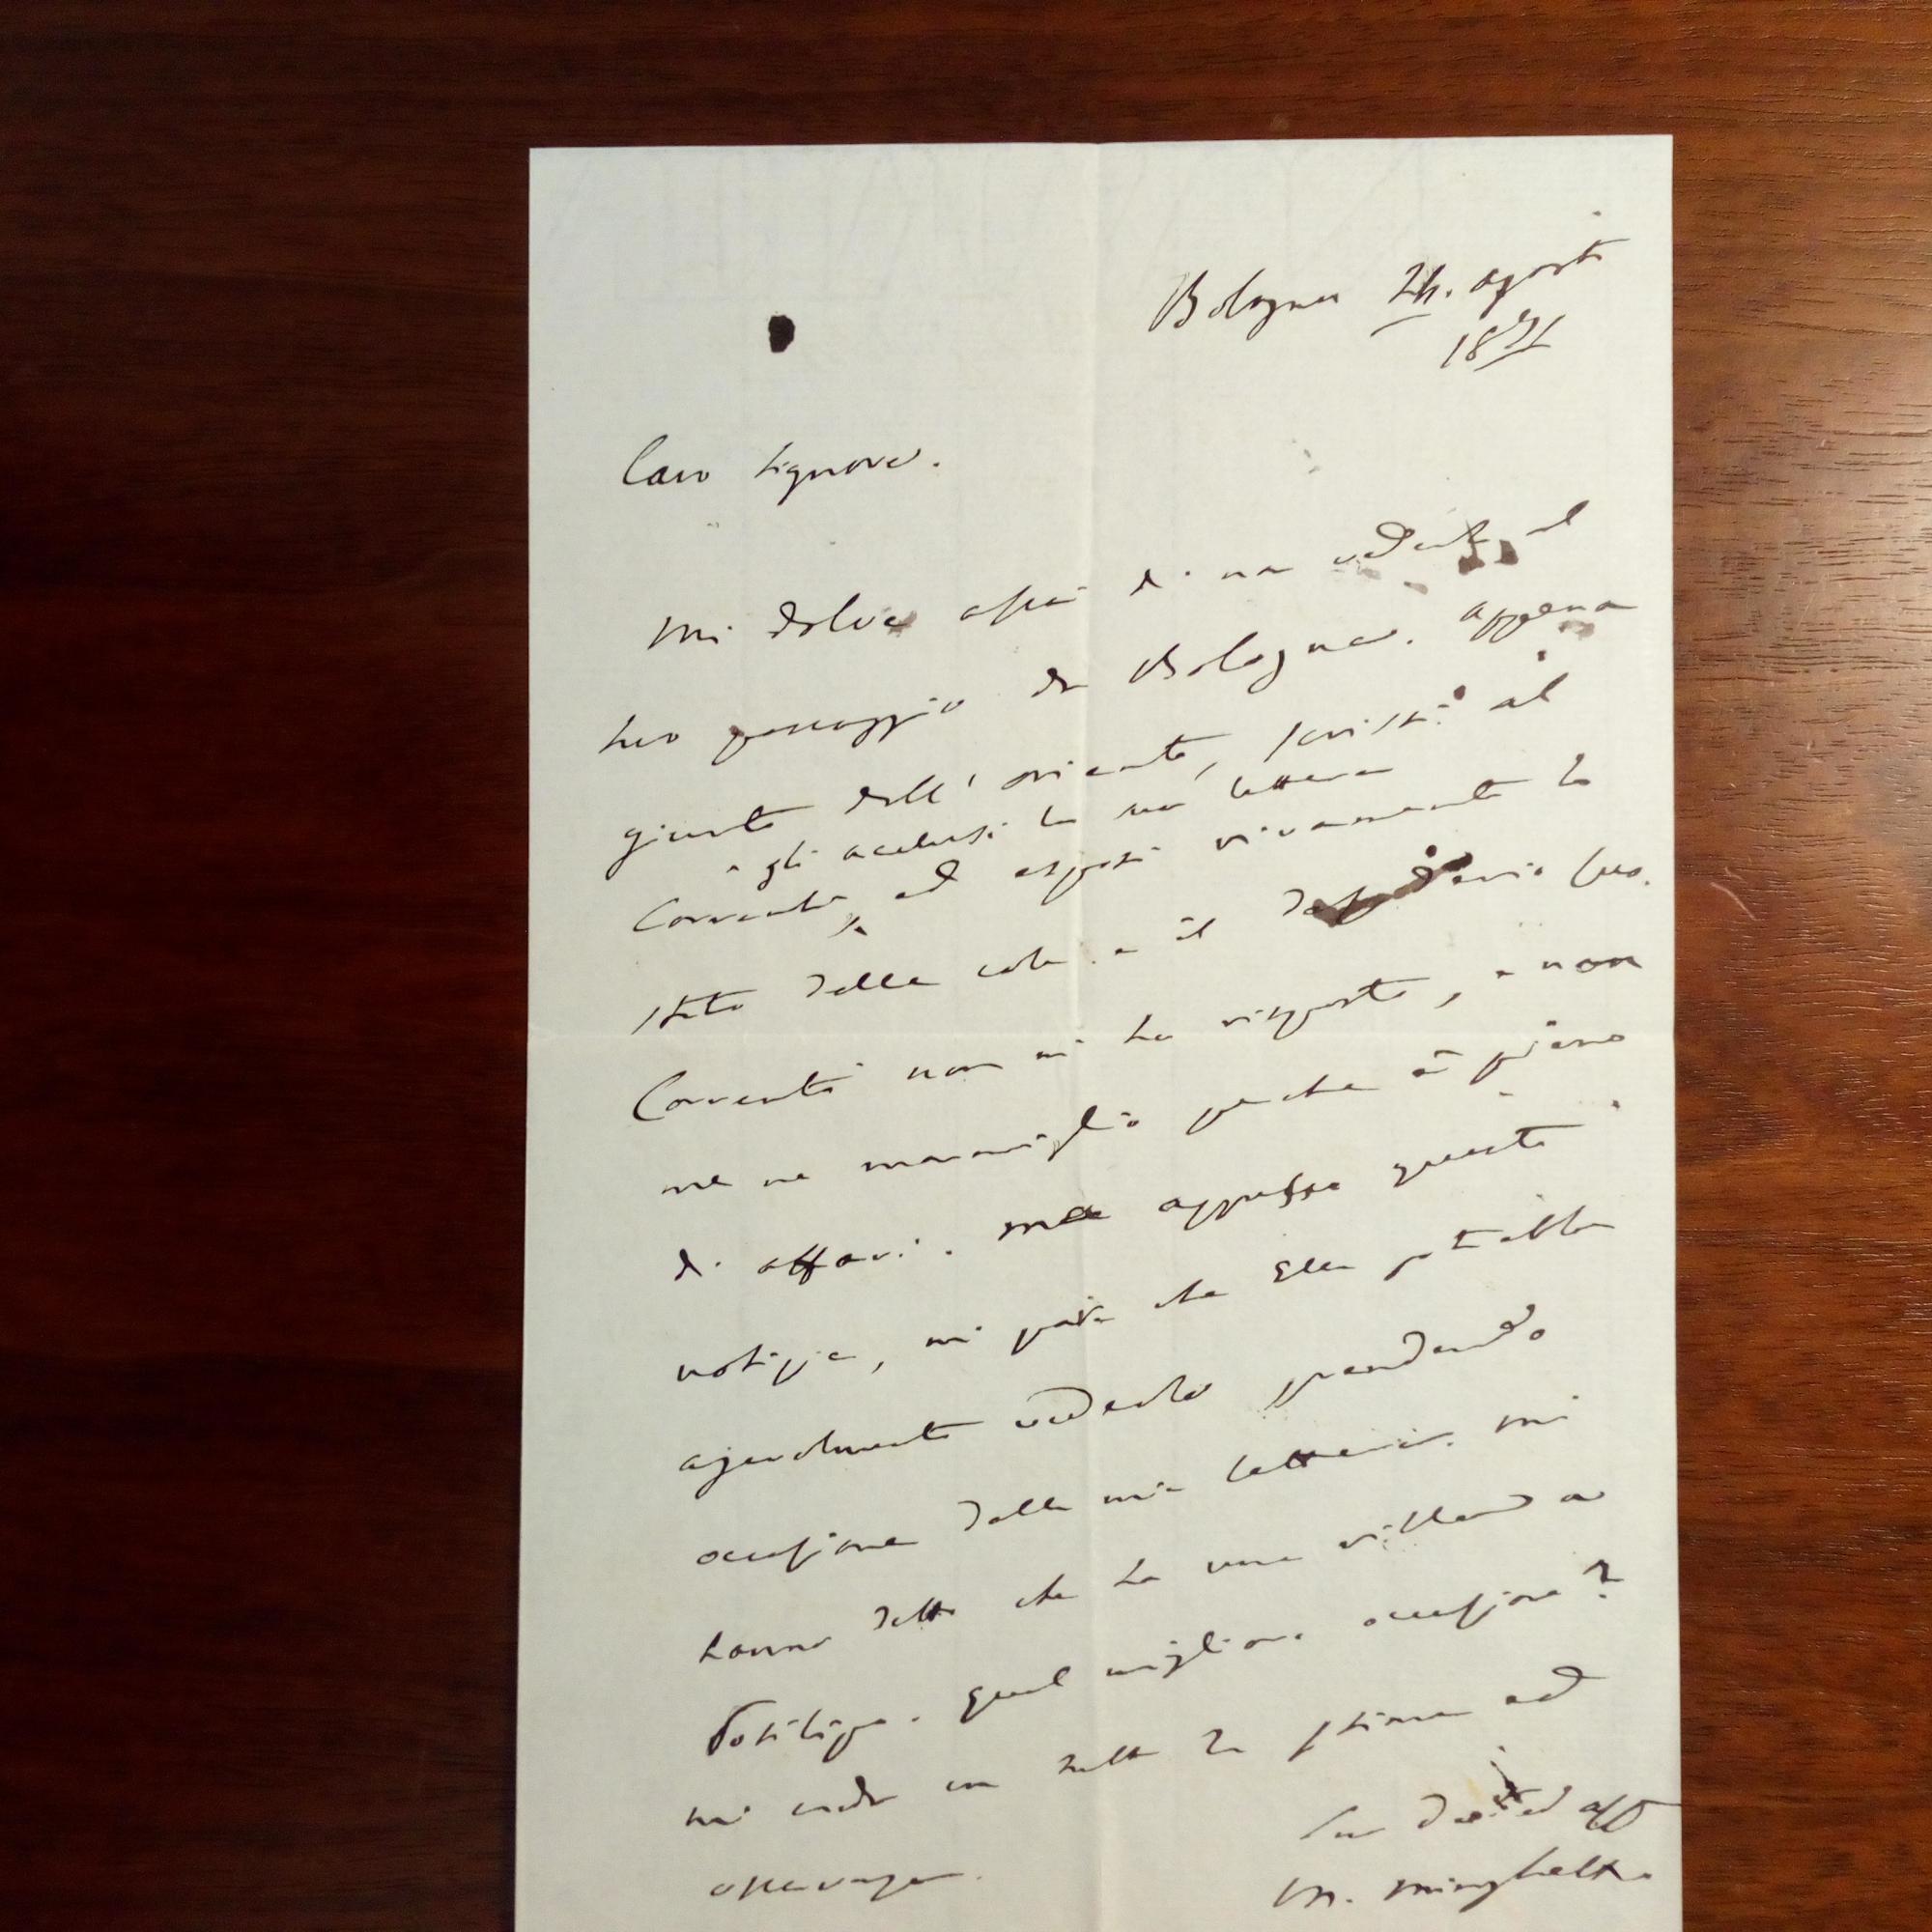 Bologna 24. agosto
1871
Caro Signore.
Mi dolse assai di non vederla al
suo passaggio da Bologna. appena
giunta dall' oriente, scrissi al
e gli acclusi la sua lettera
Correnti, ed esposi vivamente lo
stato delle cose e il desiderio suo.
Correnti non mi ha risposto, e non
me ne maraviglio perchè è pieno
di affari. ma appresso questa
notizia, mi pare che Ella potrebbe
agevolmente vederlo prendendo
occasione dalla mia lettera. mi
hanno detto che ha una villa a
Posilipo. qual migliore occasione?
mi creda con tutta la stima ed
osservanza.
Suo dev.ed aff
M. Minghetti